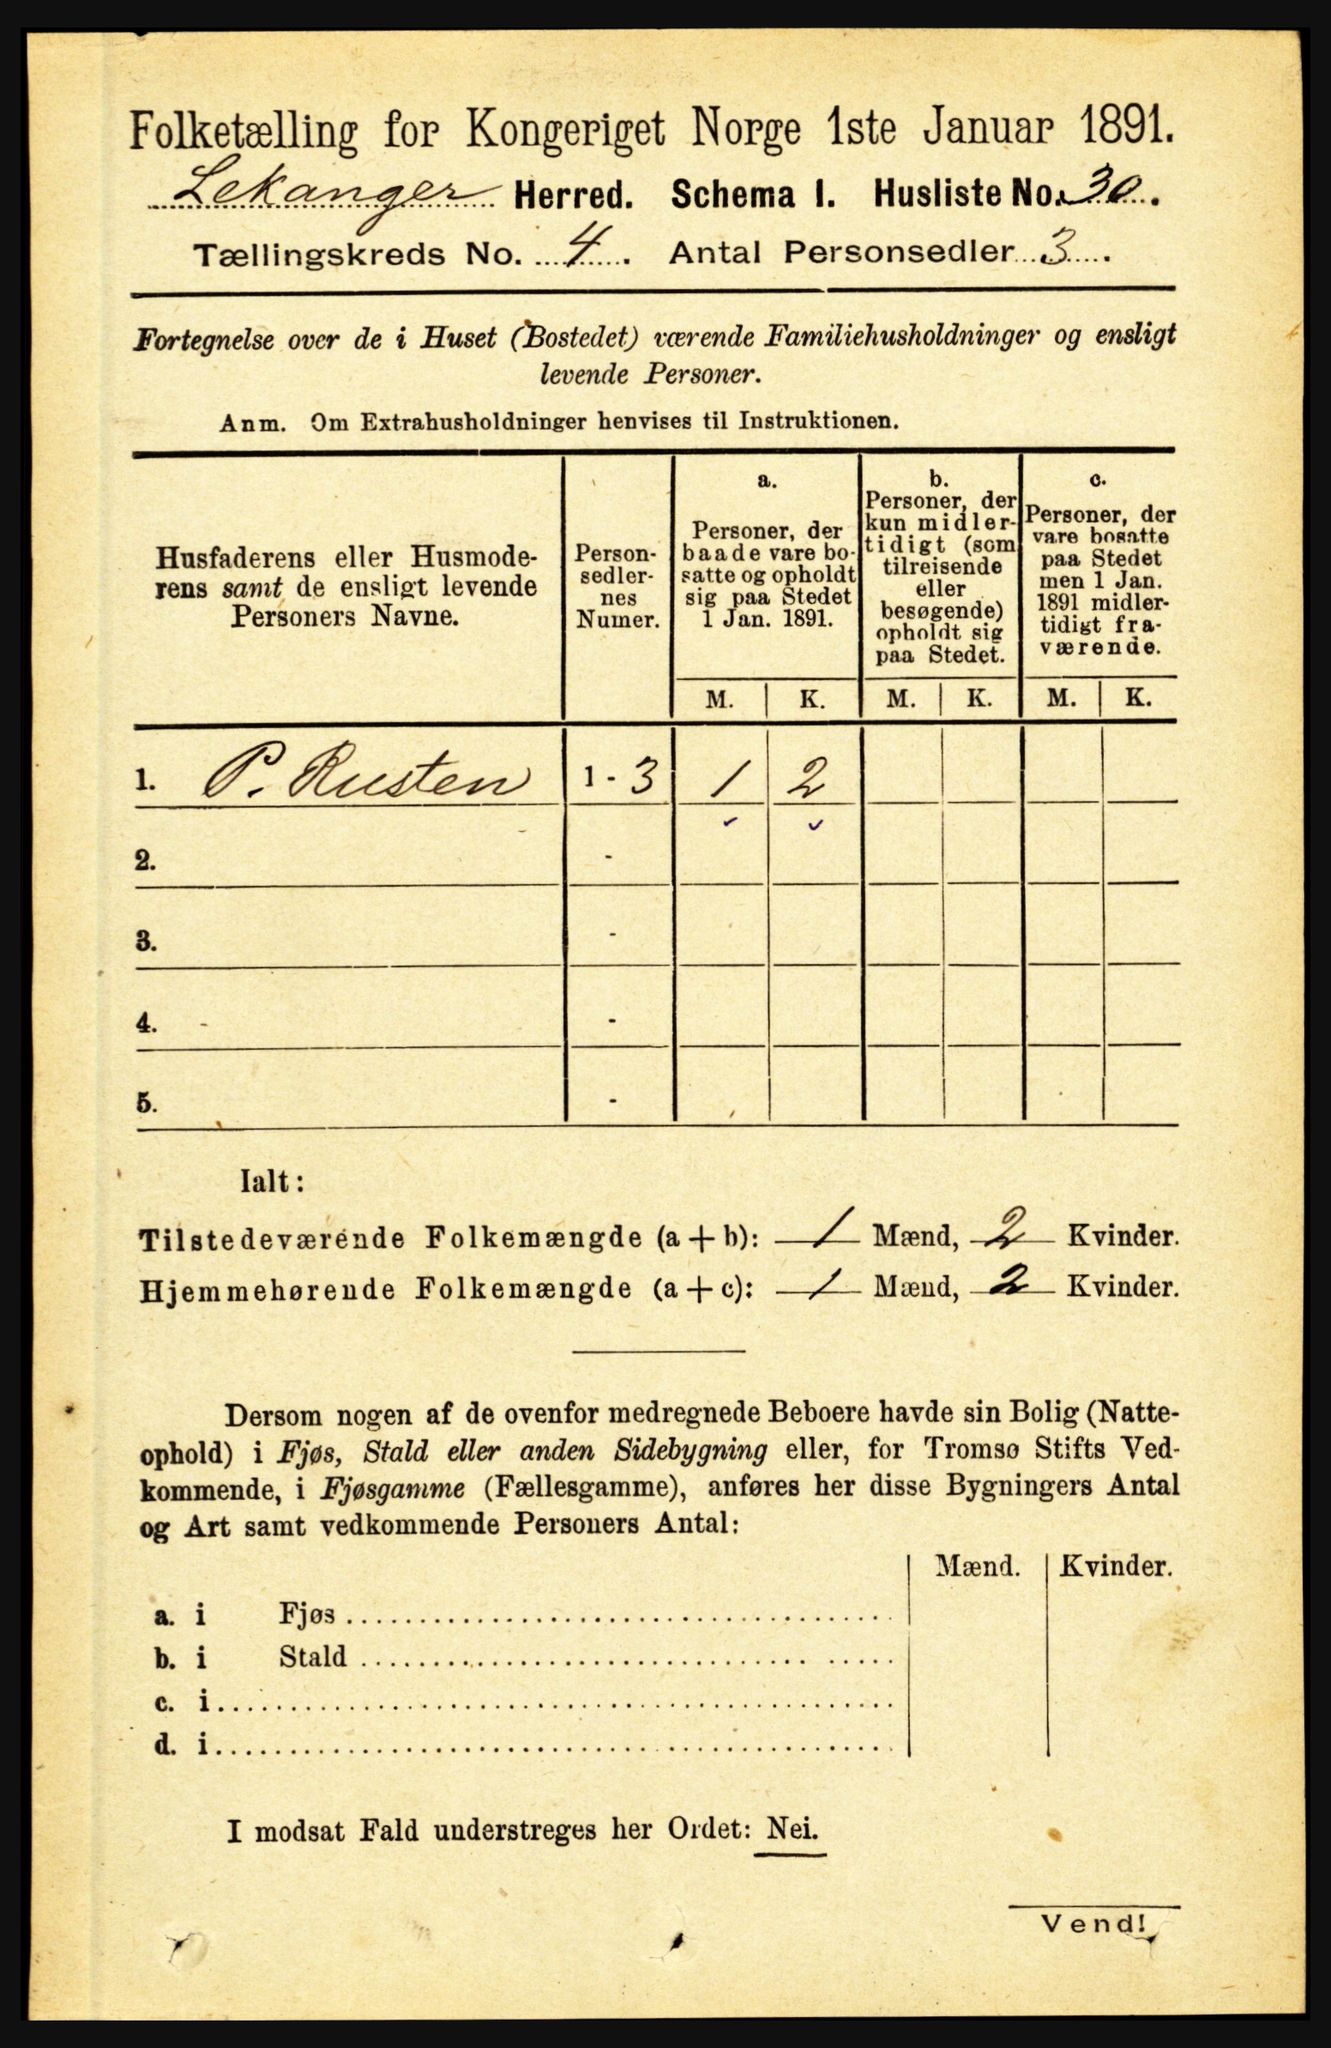 Folketælling for Kongeriget Norge 1ste Januar 1891.
Lekanger Herred. Schema I. Husliste No. 30.
Tællingskreds No. 4. Antal Personsedler 3.
Fortegnelse over de i Huset (Bostedet) værende Familiehusholdninger og ensligt
levende Personer.
Anm. Om Extrahusholdninger henvises til Instruktionen.
Husfaderens eller Husmode-
rens samt de ensligt levende
Personers Navne.
Person-
sedler-
nes
Numer.
a.
Personer, der
baade vare bo-
satte og opholdt
sig paa Stedet
1 Jan. 1891.
b.
Personer, der
kun midler-
tidigt (som
tilreisende
eller
besøgende)
opholdt sig
paa Stedet.
c.
Personer, der
vare bosatte
paa Stedet
men 1 Jan.
1891 midler-
tidigt fra-
værende.
M. K. M. K. M. K.
1. P. Rusten 1 - 3 1 2
2. -
3. -
4. -
5. -
Ialt:
Tilstedeværende Folkemængde (a + b): 1 Mænd, 2 Kvinder.
Hjemmehørende Folkemængde (a + c): 1 Mænd, 2 Kvinder.
Dersom nogen af de ovenfor medregnede Beboere havde sin Bolig (Natte-
ophold) i Fjøs, Stald eller anden Sidebygning eller, for Tromsø Stifts Ved-
kommende, i Fjøsgamme (Fællesgamme), anføres her disse Bygningers Antal
og Art samt vedkommende Personers Antal:
Mænd. Kvinder.
a. i Fjøs
b. i Stald
c. i
d. i
I modsat Fald understreges her Ordet: Nei.
Vend!